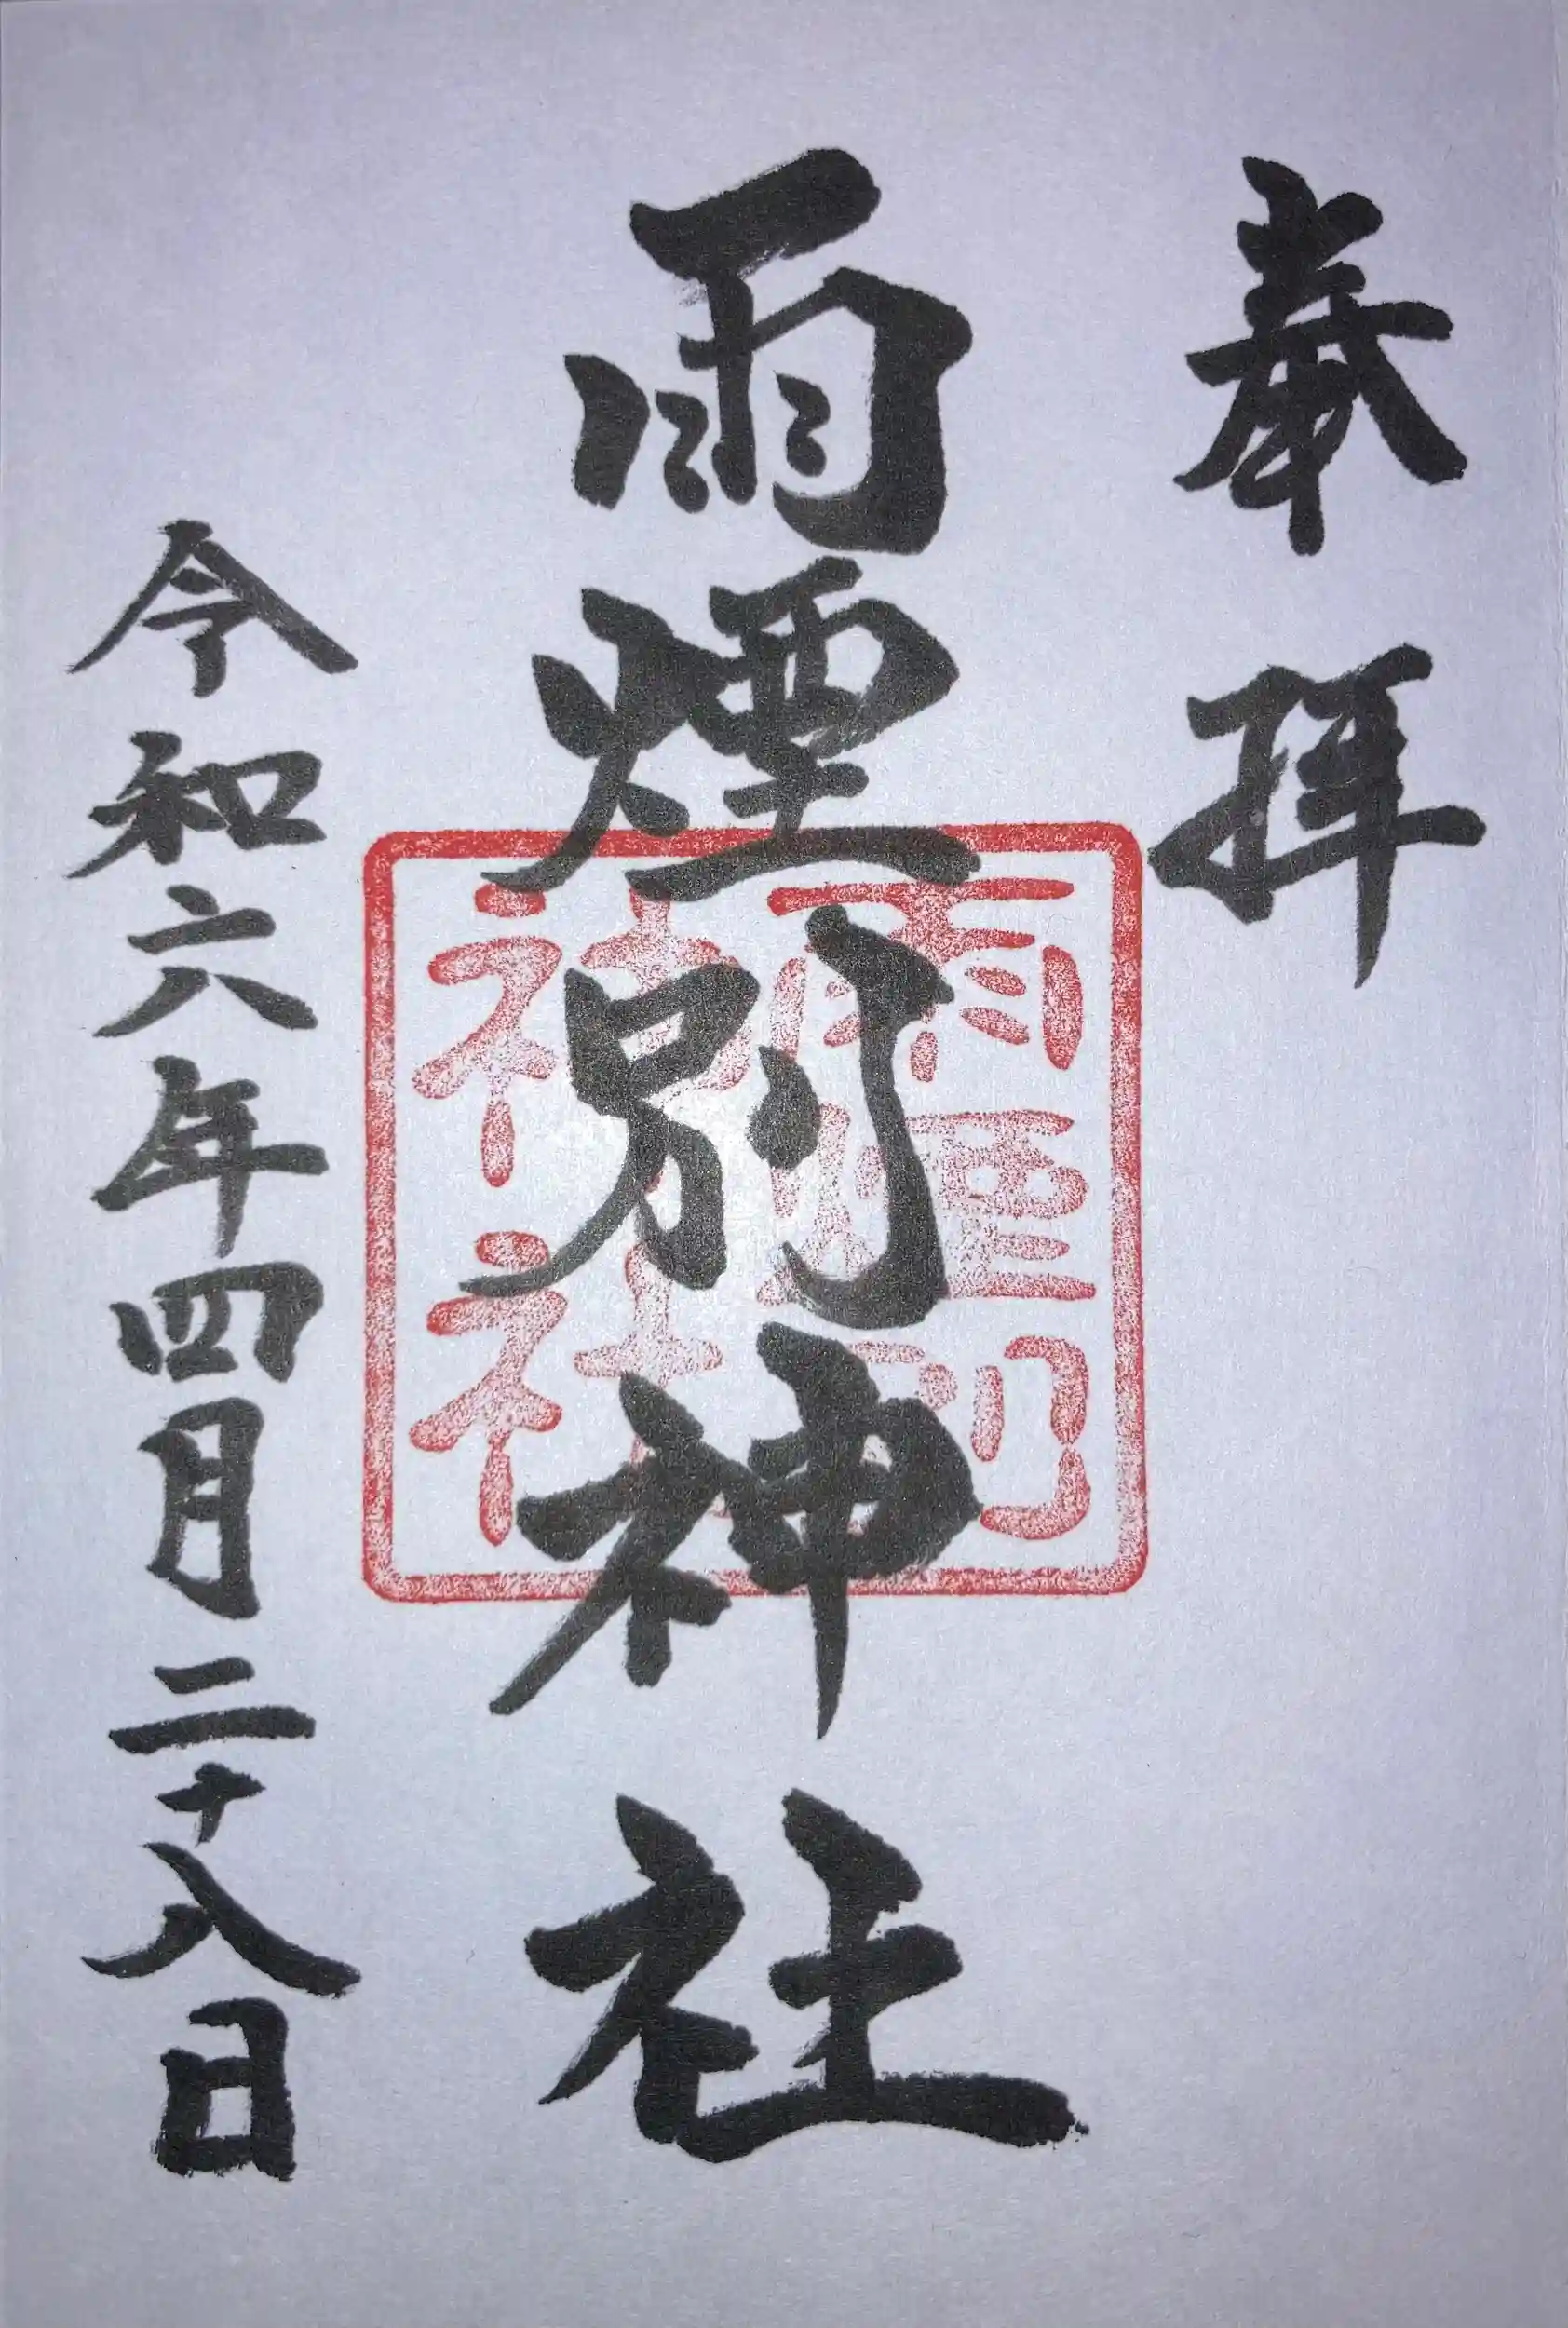 奉拝
雨煙別神社
雨煙別
神社
令和六年四月二十八日